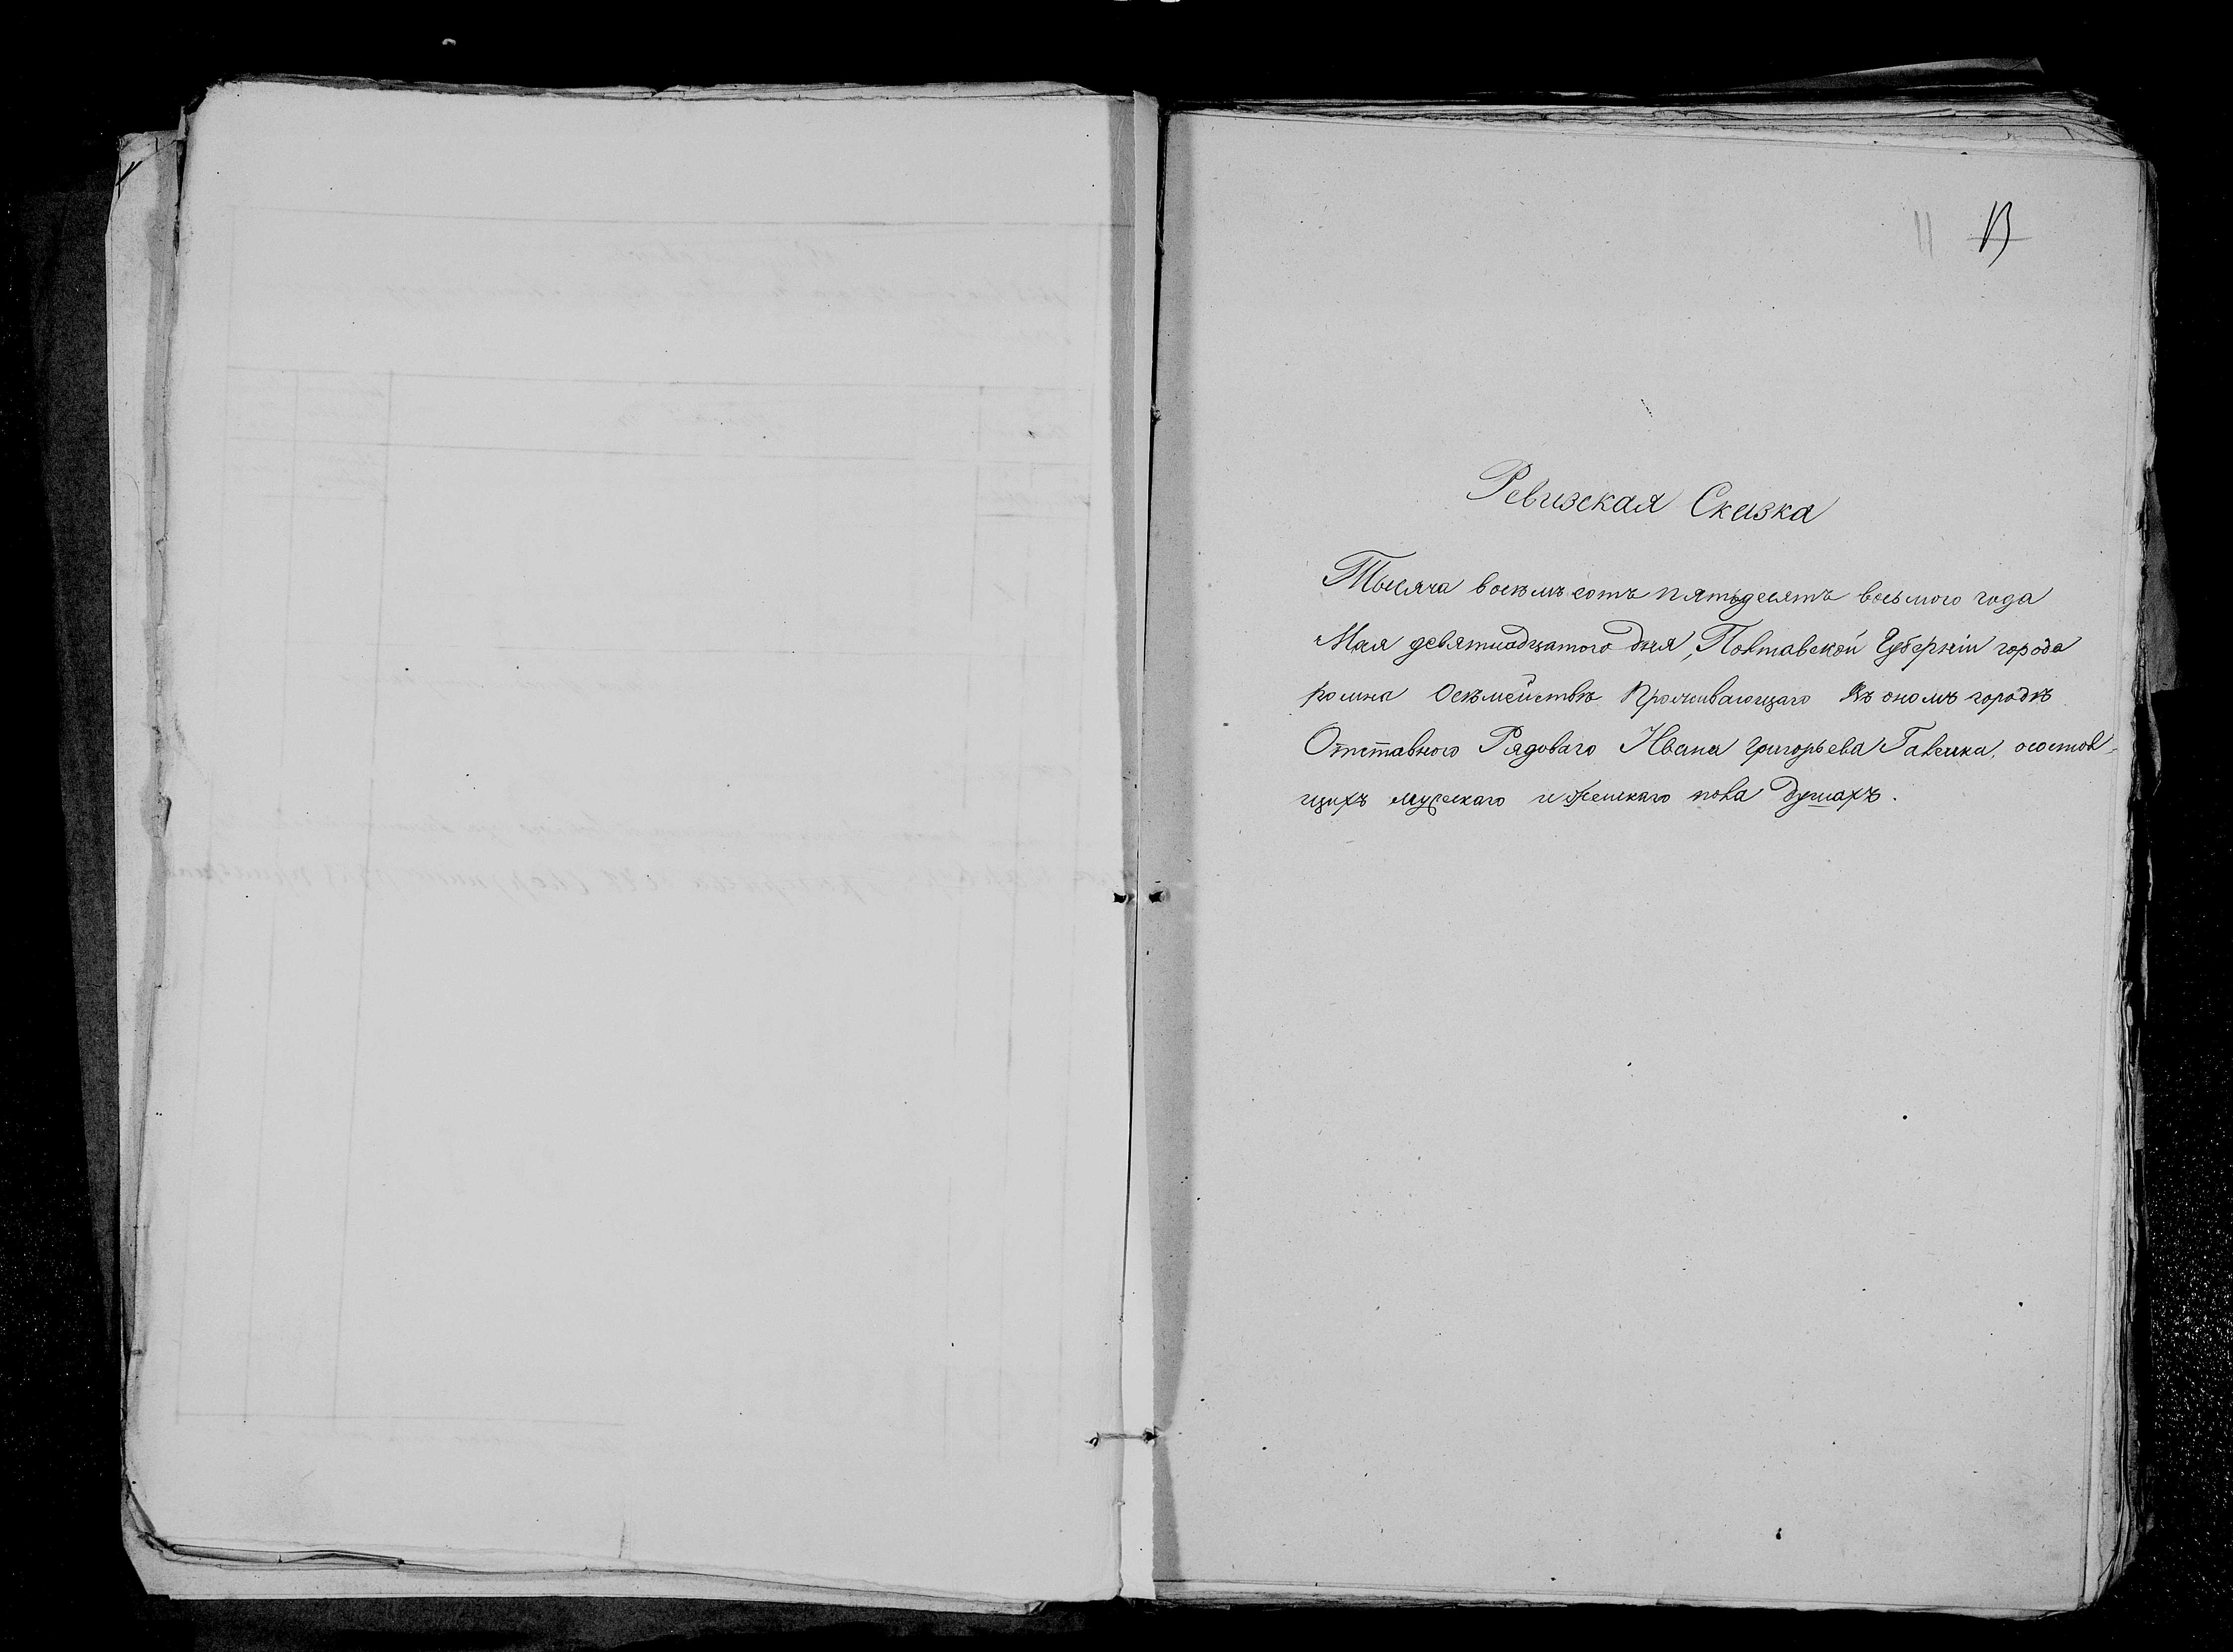 11 13
Ревизская Сказка
Тысяча восемъ сотъ пятьдесятъ восьмого года
Мая девятнадцатого дня, Полтавской Губерніи города
ромна Осемействѣ Проживающаго въ ономъ городѣ
Отставного Рядоваго Ивана Григорьева Галешка, осостоя-
щихъ мужескаго и женскаго пола душахъ.